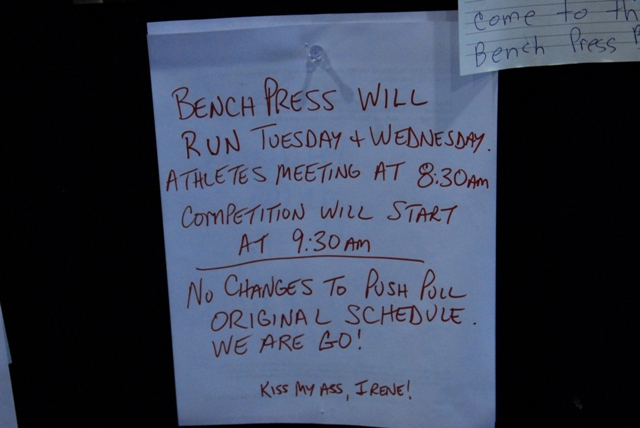 come to th
Bench Press
BENCH PRESS WILL
RUN TUESDAY + WEDNESDAY.
ATHLETES MEETING AT 8:30AM
COMPETITION WILL START
AT 9:30AM
NO CHANGES TO PUSH PULL
ORIGINAL SCHEDULE.
WE ARE GO!
KISS MY ASS, IRENE!